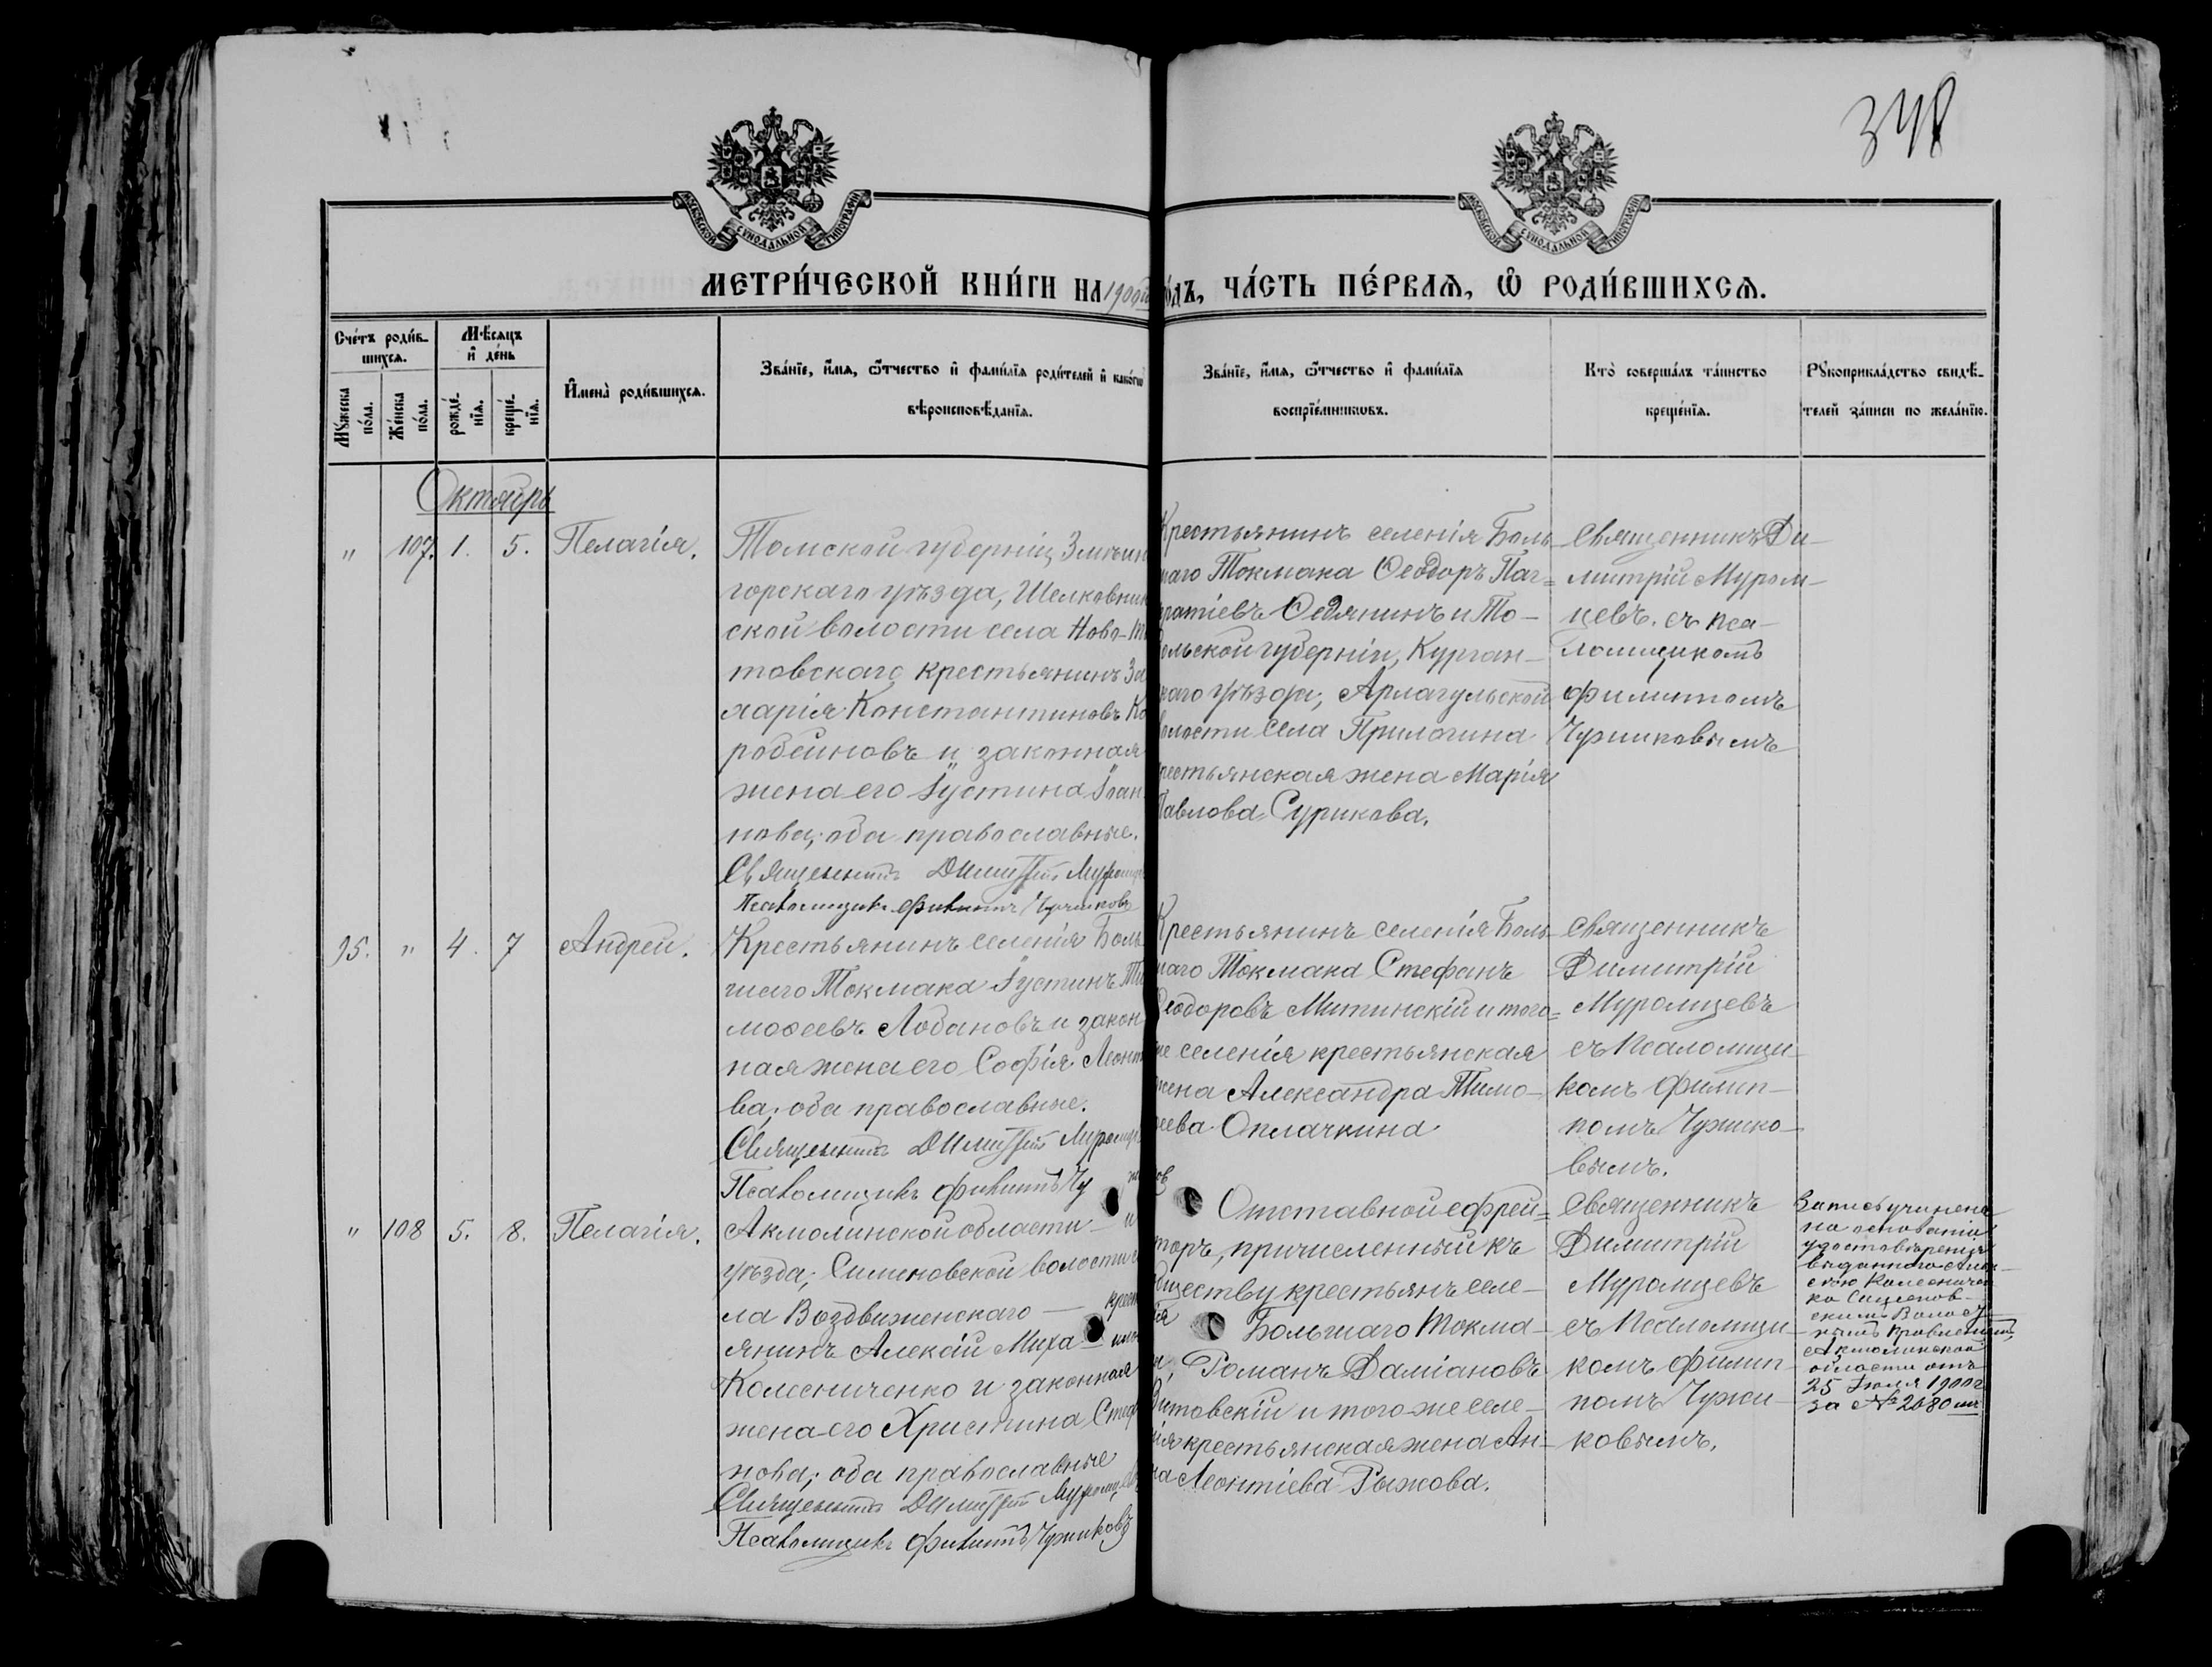 348
МОСКОВСКОЙ СѴНОДАЛЬНОЙ ТИПОГРАФІИ
МОСКОВСКОЙ СѴНОДАЛЬНОЙ ТИПОГРАФІИ
МЕТРИ́ЧЕСКОЙ КНИ́ГИ НА 1900 го́дъ, ЧА́СТЬ ПЕ́РВАѦ, Ѡ҆ РОДИ́ВШИХСѦ.
Сче́тъ роди́в-
шихсѧ.
Мѹ́жеска по́ла.
Же́нска по́ла.
Мѣ́сѧцъ
и҆ де́нь
рожде́-
нїѧ.
креще́-
нїѧ.
И҆мена̀ роди́вшихсѧ.
Зва́нїе, и҆́мѧ, ѻ҆́тчество и҆ фами́лїѧ роди́телей и҆ како́гѡ
вѣроисповѣ́данїѧ.
Зва́нїе, и҆́мѧ, ѻ҆́тчество и҆ фами́лїѧ
воспрїе́мникѡвъ.
Кто̀ соверша́лъ та́инство
креще́нїѧ.
Рѹкоприкла́дство свидѣ́-
телей за́писи по жела́нїю.
Октябрь
" 107. 1. 5. Пелагія.
Томской губерніи, Змѣин
горскаго уѣзда, Шелковник
ской волости села Ново-
товскаго крестьянинъ
ларія Константиновъ Ко
робейновъ и законная
жена его Іустина Іоан
нова; оба православные.
Священникъ Димитрій Муромц
Псаломщикъ Филиппъ Чужиковъ
Крестьянинъ селенія Боль-
шаго Токмака Ѳеодоръ Пан-
кратіевъ Ѳедянинъ и То-
больской губерніи, Курган-
скаго уѣзда, Арлагульской
волости села Прилогина
крестьянская жена Марія
Павлова Сурикова.
Священникъ Ди-
митрій Муром-
цевъ. съ пса-
ломщикомъ
Филиппомъ
Чужиковымъ
95. " 4. 7 Андрей.
Крестьянинъ селенія Боль
шаго Токмака Іустинъ Ти
моѳеевъ Лобановъ и закон
ная жена его Софія Леонт
ва; оба православные.
Священникъ Димитрій Муромце
Псаломщикъ Филиппъ Чу жи ков
Крестьянинъ селенія Боль-
шаго Токмака Стефанъ
Ѳеодоровъ Митинскій и того-
же селенія крестьянская
жена Александра Тимо-
ѳеева Оплачкина
Священникъ
Димитрій
Муромцевъ
съ Псаломщи-
комъ Филип-
помъ Чужико-
вымъ.
" 108 5. 8. Пелагія.
Акмолинской области - и
уѣзда; Симоновской волости
ла Воздвиженскаго — крест
янинъ Алексій Миха - ило
Колесниченко и законная
жена его Христина Стеф
нова; оба православные
Священникъ Димитрій Муромцевъ
Псаломщикъ Филиппъ Чужиковъ
Отставной ефрей-
торъ, причисленный къ
обществу крестьянъ селе-
нія Большаго Токма-
ка, Романъ Даміановъ
Витовскій и того-же селе-
нія крестьянская жена Ан-
на Леонтіева Рыжова.
Священникъ
Димитрій
Муромцевъ
съ Псаломщи-
комъ Филип-
помъ Чужи-
ковымъ.
Запись учинена
на основаніи
удостовѣренія
выданнаго Алек-
сѣю Колесничен
ко Симонов-
скимъ Волост-
нымъ Правленіемъ,
Акмолинской
области отъ
25 Іюля 1900 г
за № 2080